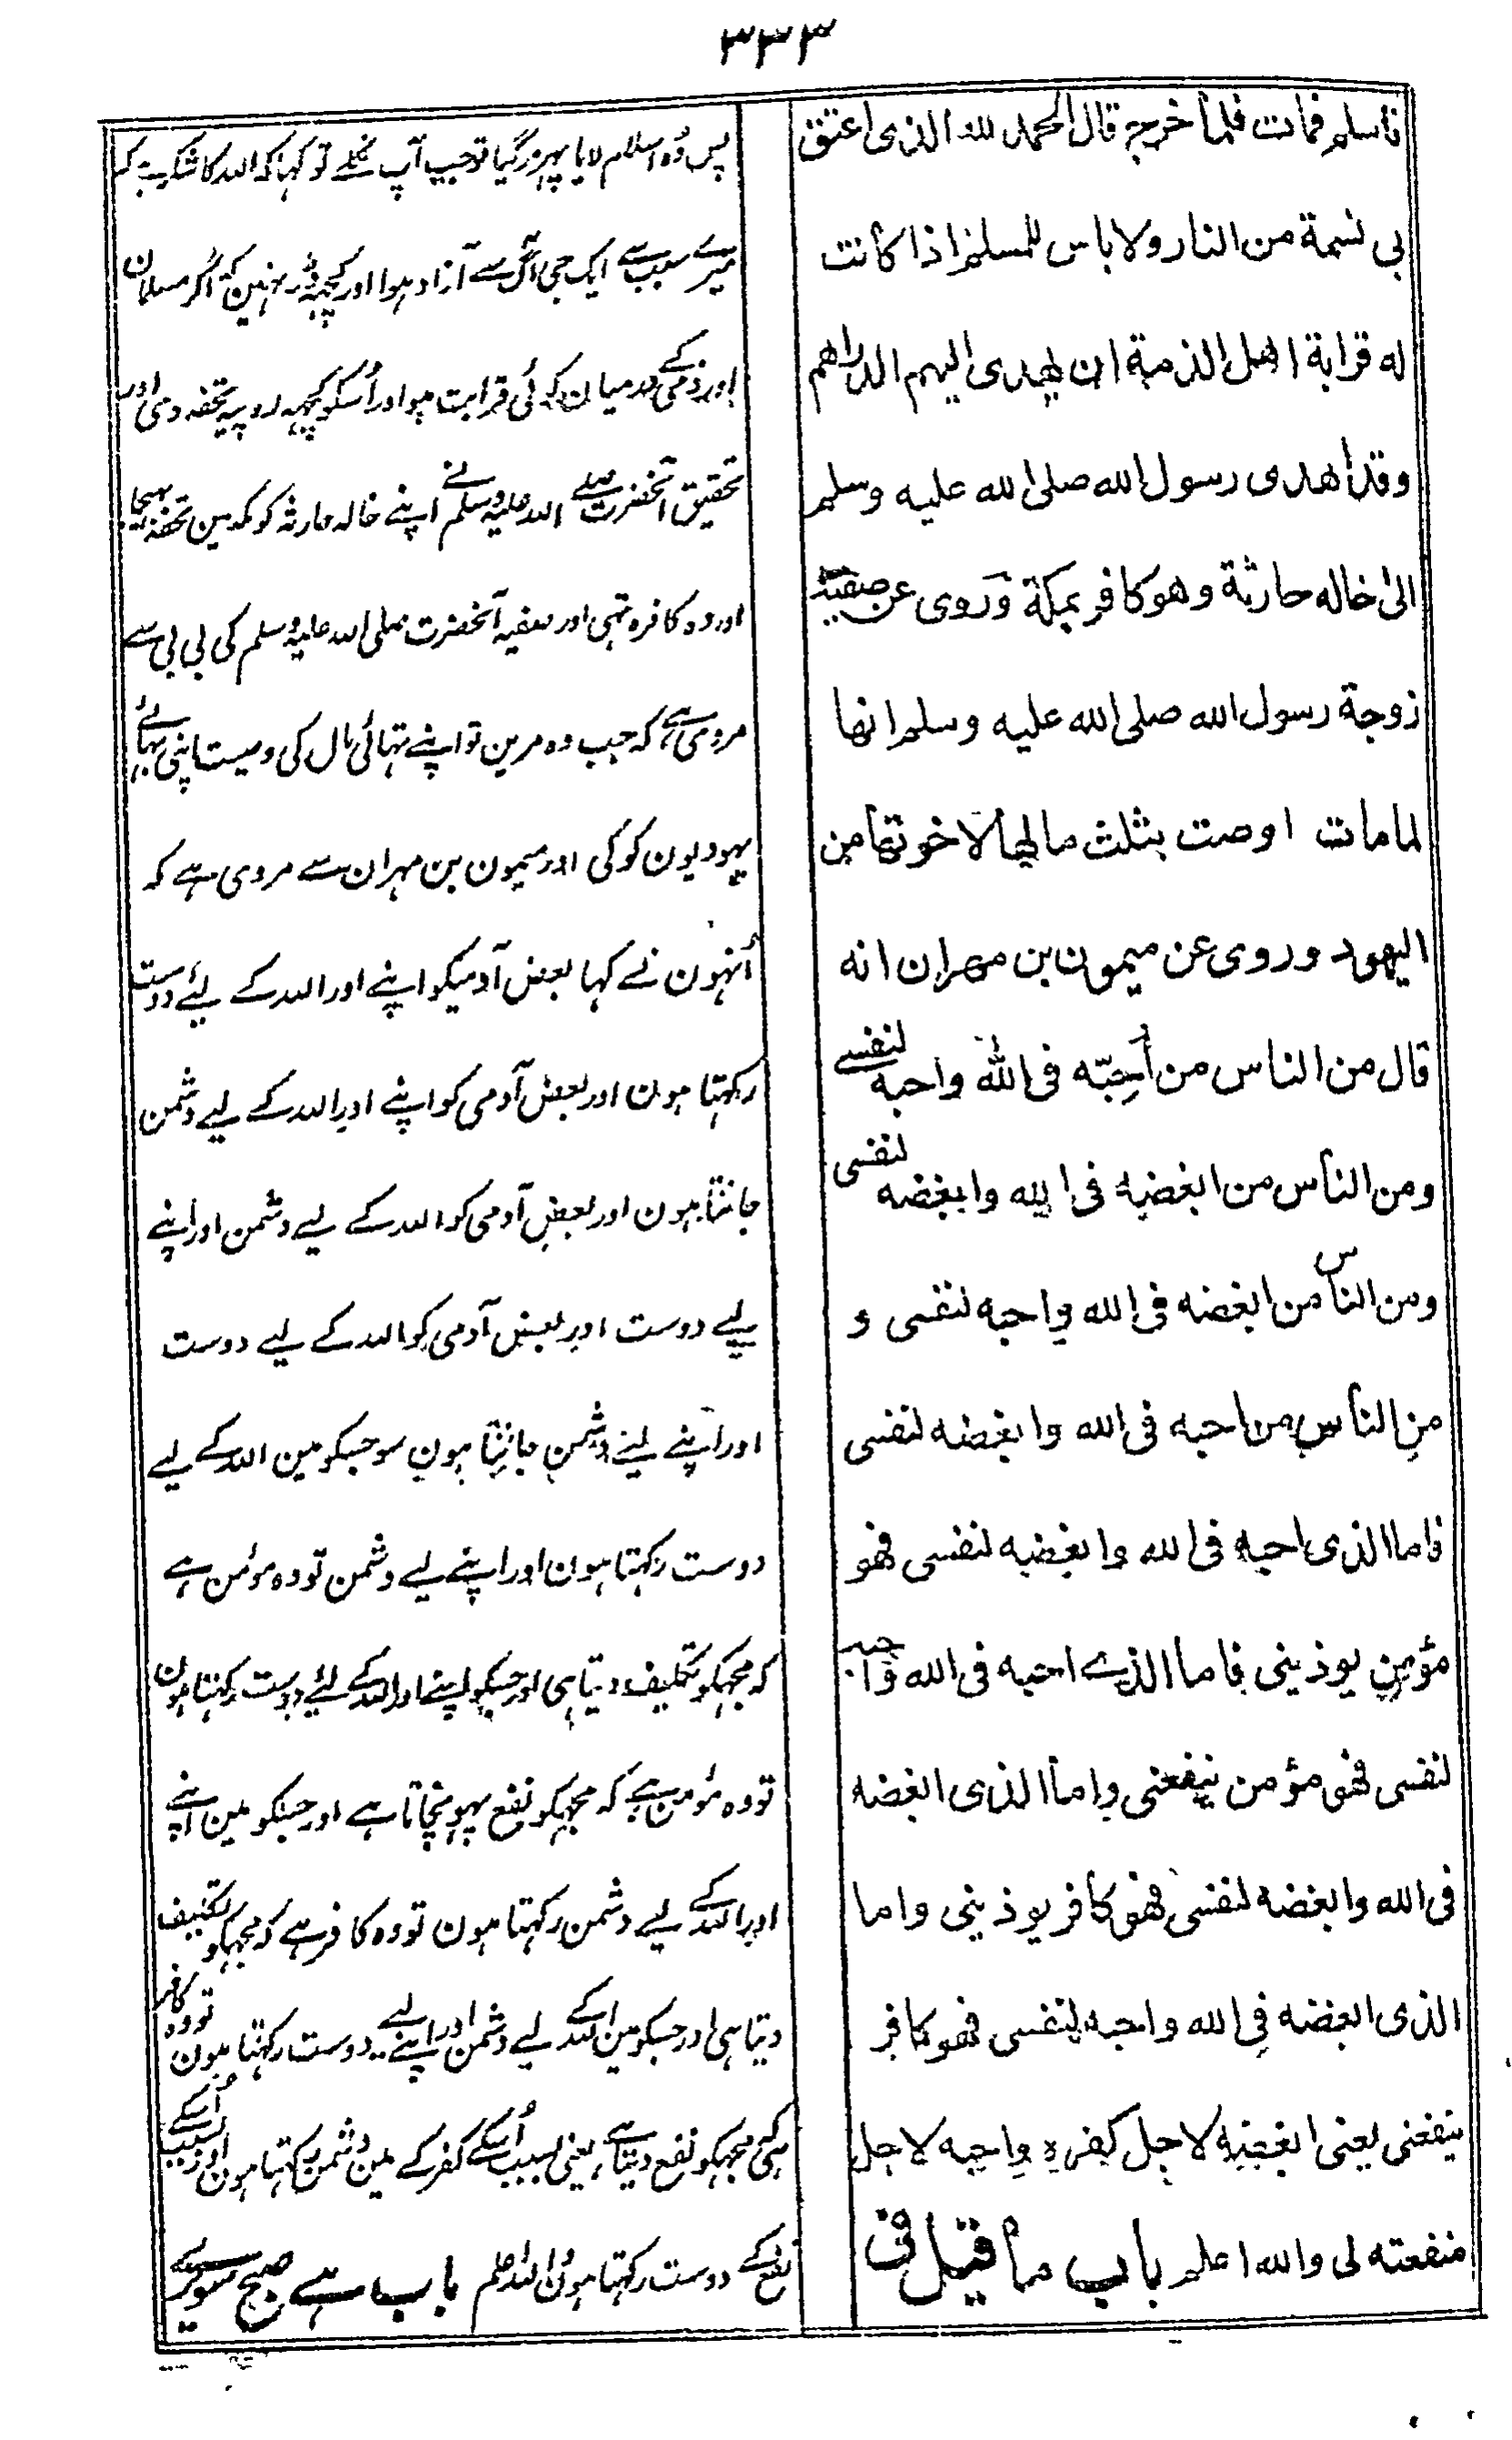 ٣٣٣
فاسلم فمات فلما خرج قال الحمد لله الذى اعتق
بى نسمة من النار ولا باس للمسلم اذا كانت
له قرابة اهل الذمة ان يهدى اليهم الدراهم
وقد اهدى رسول الله صلى الله عليه وسلم
الى خاله حارثة وهو كافر بمكة وروى عن صفية
زوجة رسول الله صلى الله عليه وسلم انها
لما مات اوصت بثلث مالها لاخوتها من
اليهود وروى عن ميمون بن مهران انه
قال من الناس من أحِبّه فى الله واحبه لنفسے
ومن الناس من ابغضه فى الله وابغضه لنفسى
ومن الناس من ابغضه فى الله واحبه لنفسى و
من الناس من احبه فى الله وابغضه لنفسى
فاما الذى احبه فى الله وابغضه لنفسى فهو
مؤمن يوذينى فاما الذے احبه فى الله واحبه
لنفسى فهو مؤمن ينفعنى واما الذى ابغضه
فى الله وابغضه لنفسى فهو كافر يوذينى واما
الذى ابغضه فى الله واحبه لنفسى فهو كافر
ينفعنى يعنى ابغضه لاجل كفره واحبه لاجل
منفعته لى والله اعلم باب ما قيل فى
پس وُہ اسلام لایا پہر مرگیا تو جب آپ نکلے تو کہا کہ اللہ کا شکر ہے کہ
میرے سبب سے ایک جی آگ سے آزاد ہوا اور کچہہ ڈر نہین کہ اگر مسلمان
اور ذمی کے درمیان کوئی قرابت ہو اور اُسکو کچہہ روپیہ تحفہ دی اور
تحقیق آنحضرت صلے اللہ علیہ وسلم نے اپنے خالہ حارثہ کو مکہ مین تحفہ بہیجا
اور وہ کافرہ تہی اور صفیہ آنحضرت صلی اللہ علیہ وسلم کی بی بی سے
مروی ہے کہ جب وہ مرین تو اپنے تہائی مال کی وصیت اپنی بہائے
یہودیون کو کی اور میمون بن مہران سے مروی ہے کہ
اُنہون نے کہا بعض آدمیکو اپنے اور اللہ کے لیئے دوست
رکہتا ہون اور بعض آدمی کو اپنے اور اللہ کے لیے دشمن
جانتا ہون اور بعض آدمی کو اللہ کے لیے دشمن اور اپنے
لیے دوست اور بعض آدمی کو اللہ کے لیے دوست
اور اپنے لیئے دشمن جانتا ہون سو جسکو مین اللہ کے لیے
دوست رکہتا ہون اور اپنے لیے دشمن تو وہ مومن ہے
کہ مجہکو تکلیف دیتا ہی اور جسکو اپنے اور اللہ کے لئے دوست رکہتا ہون
تو وہ مومن ہے کہ مجہکو نفع پہونچاتا ہے اور جسکو مین اپنے
اور اللہ کے لیے دشمن رکہتا ہون تو وہ کافر ہے کہ مجہکو تکلیف
دیتا ہی اور جسکو مین اللہ کے لیے دشمن اور اپنے لیے دوست رکہتا ہون تو وہ کافر
ہی کہ مجہکو نفع دیتا ہے یعنی بسبب اُسکے کفر کے مین دشمن رکہتا ہون اور بسبب اُسکے
نفع کے دوست رکہتا ہون واللہ اعلم باب ہے صبح سویرے